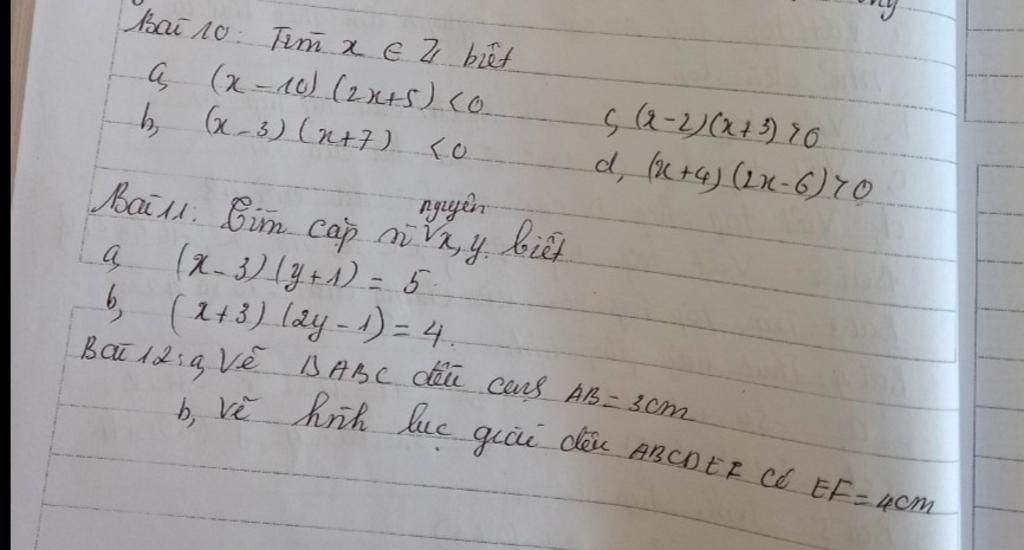 Bài 10: Tìm x ∈ ℤ biết
a, (x - 10) (2x+5) < 0
b, (x - 3) (x + 7) < 0
c, (x - 2) (x + 3) > 0
d, (x + 4) (2x - 6) > 0
Bài 11: Tìm cặp số nguyên x, y biết
a, (x - 3) (y + 1) = 5.
b, (x + 3) (2y - 1) = 4.
Bài 12: a, Vẽ Δ ABC đều cạnh AB = 3cm
b, Vẽ hình lục giác đều ABCDEF có EF = 4cm